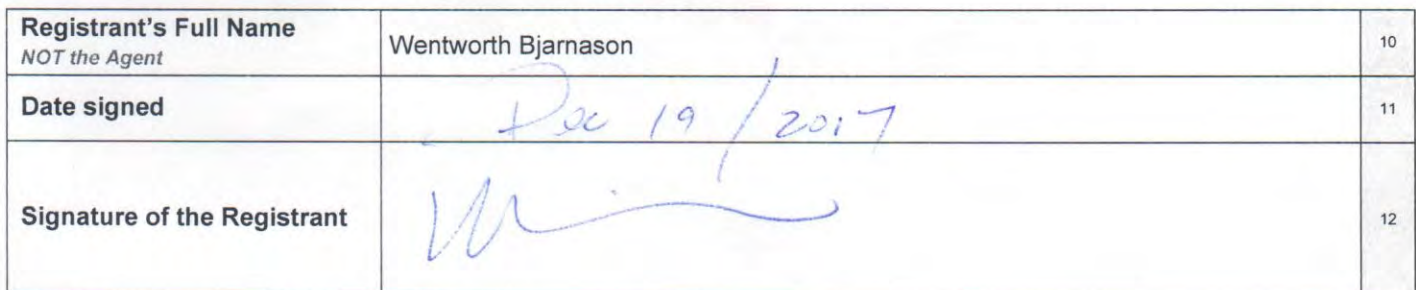 Registrant's Full Name
NOT the Agent
Wentworth Bjarnason
10
Date signed
Dec 19/2017
11
Signature of the Registrant
12